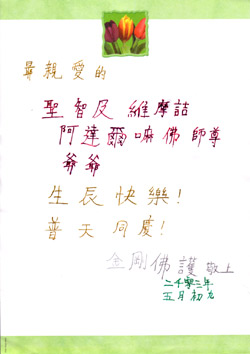 最親愛的
聖智及維摩詰
阿達爾嘛佛師尊
爺爺
生辰快樂!
普天同慶!
金剛佛護敬上
二千零三年
五月初九